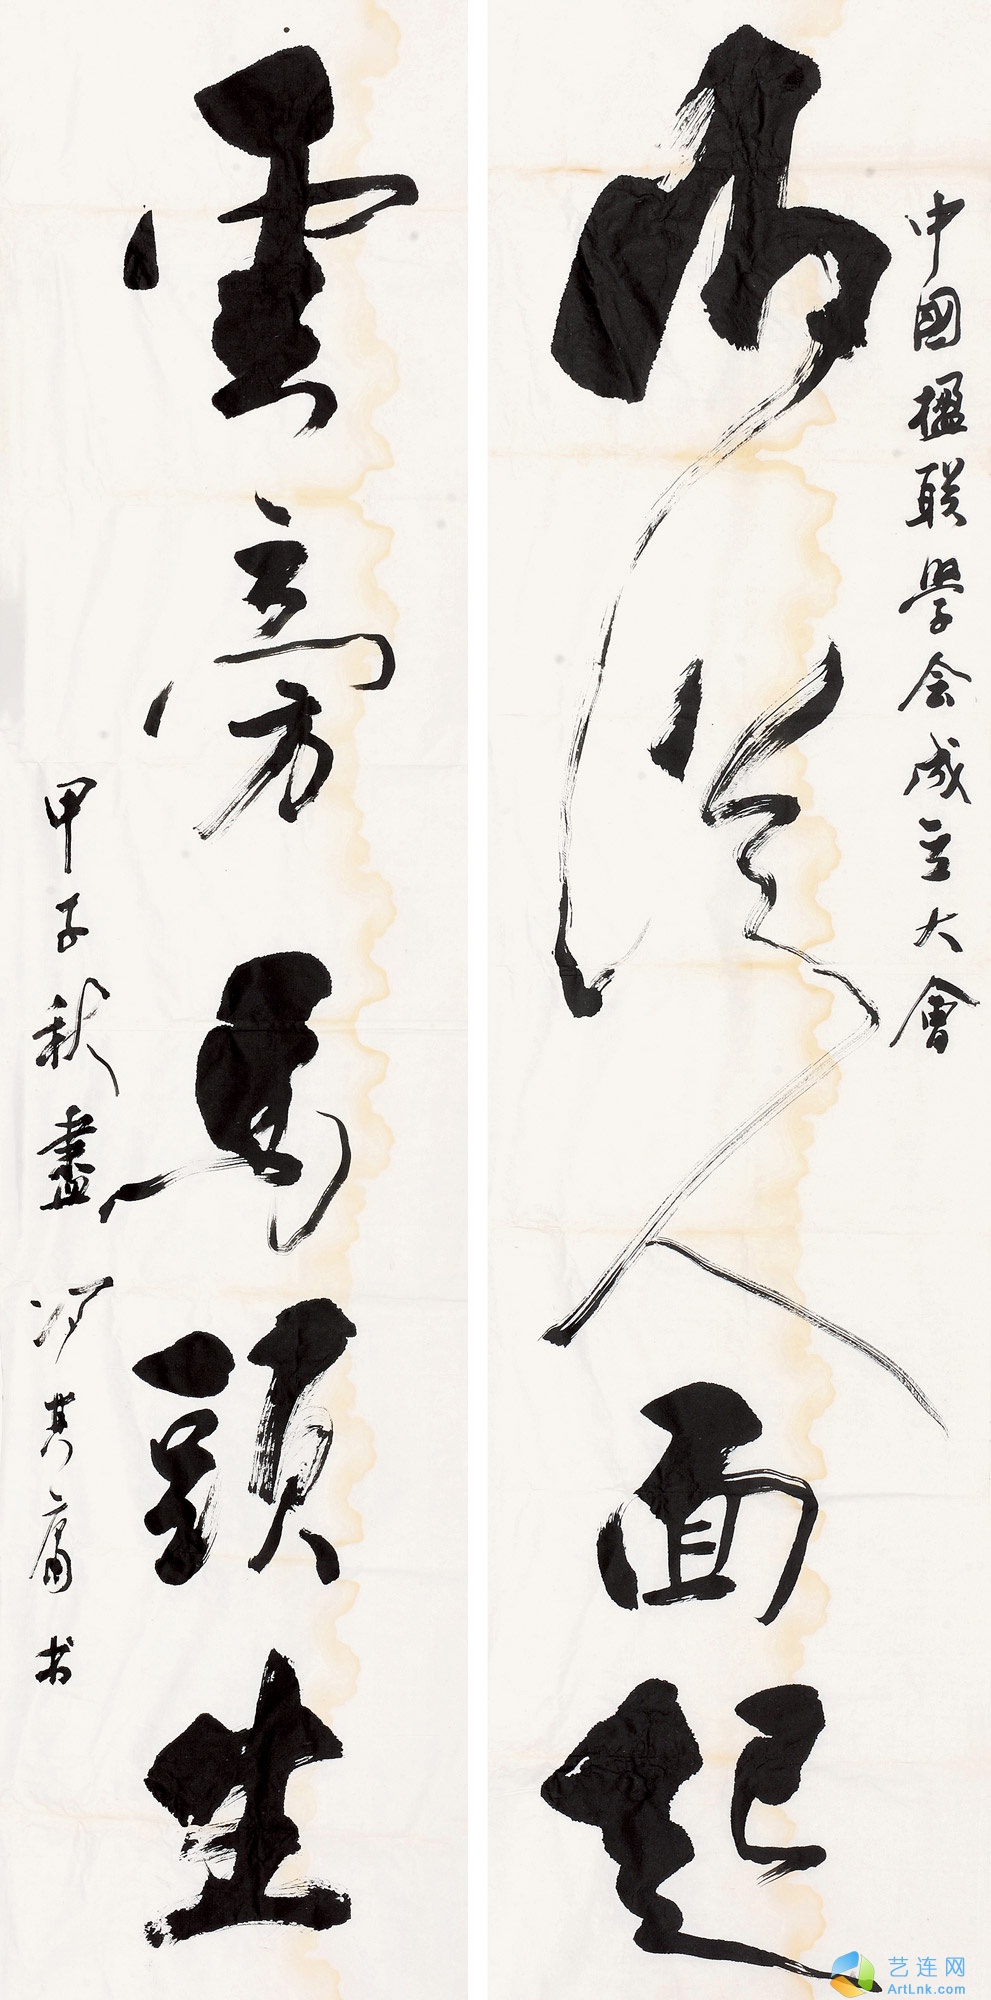 中國楹联學会成立大會
山從人面起
雲旁馬頭生
甲子秋盡
冯其庸书
艺连网
ArtLnk.com